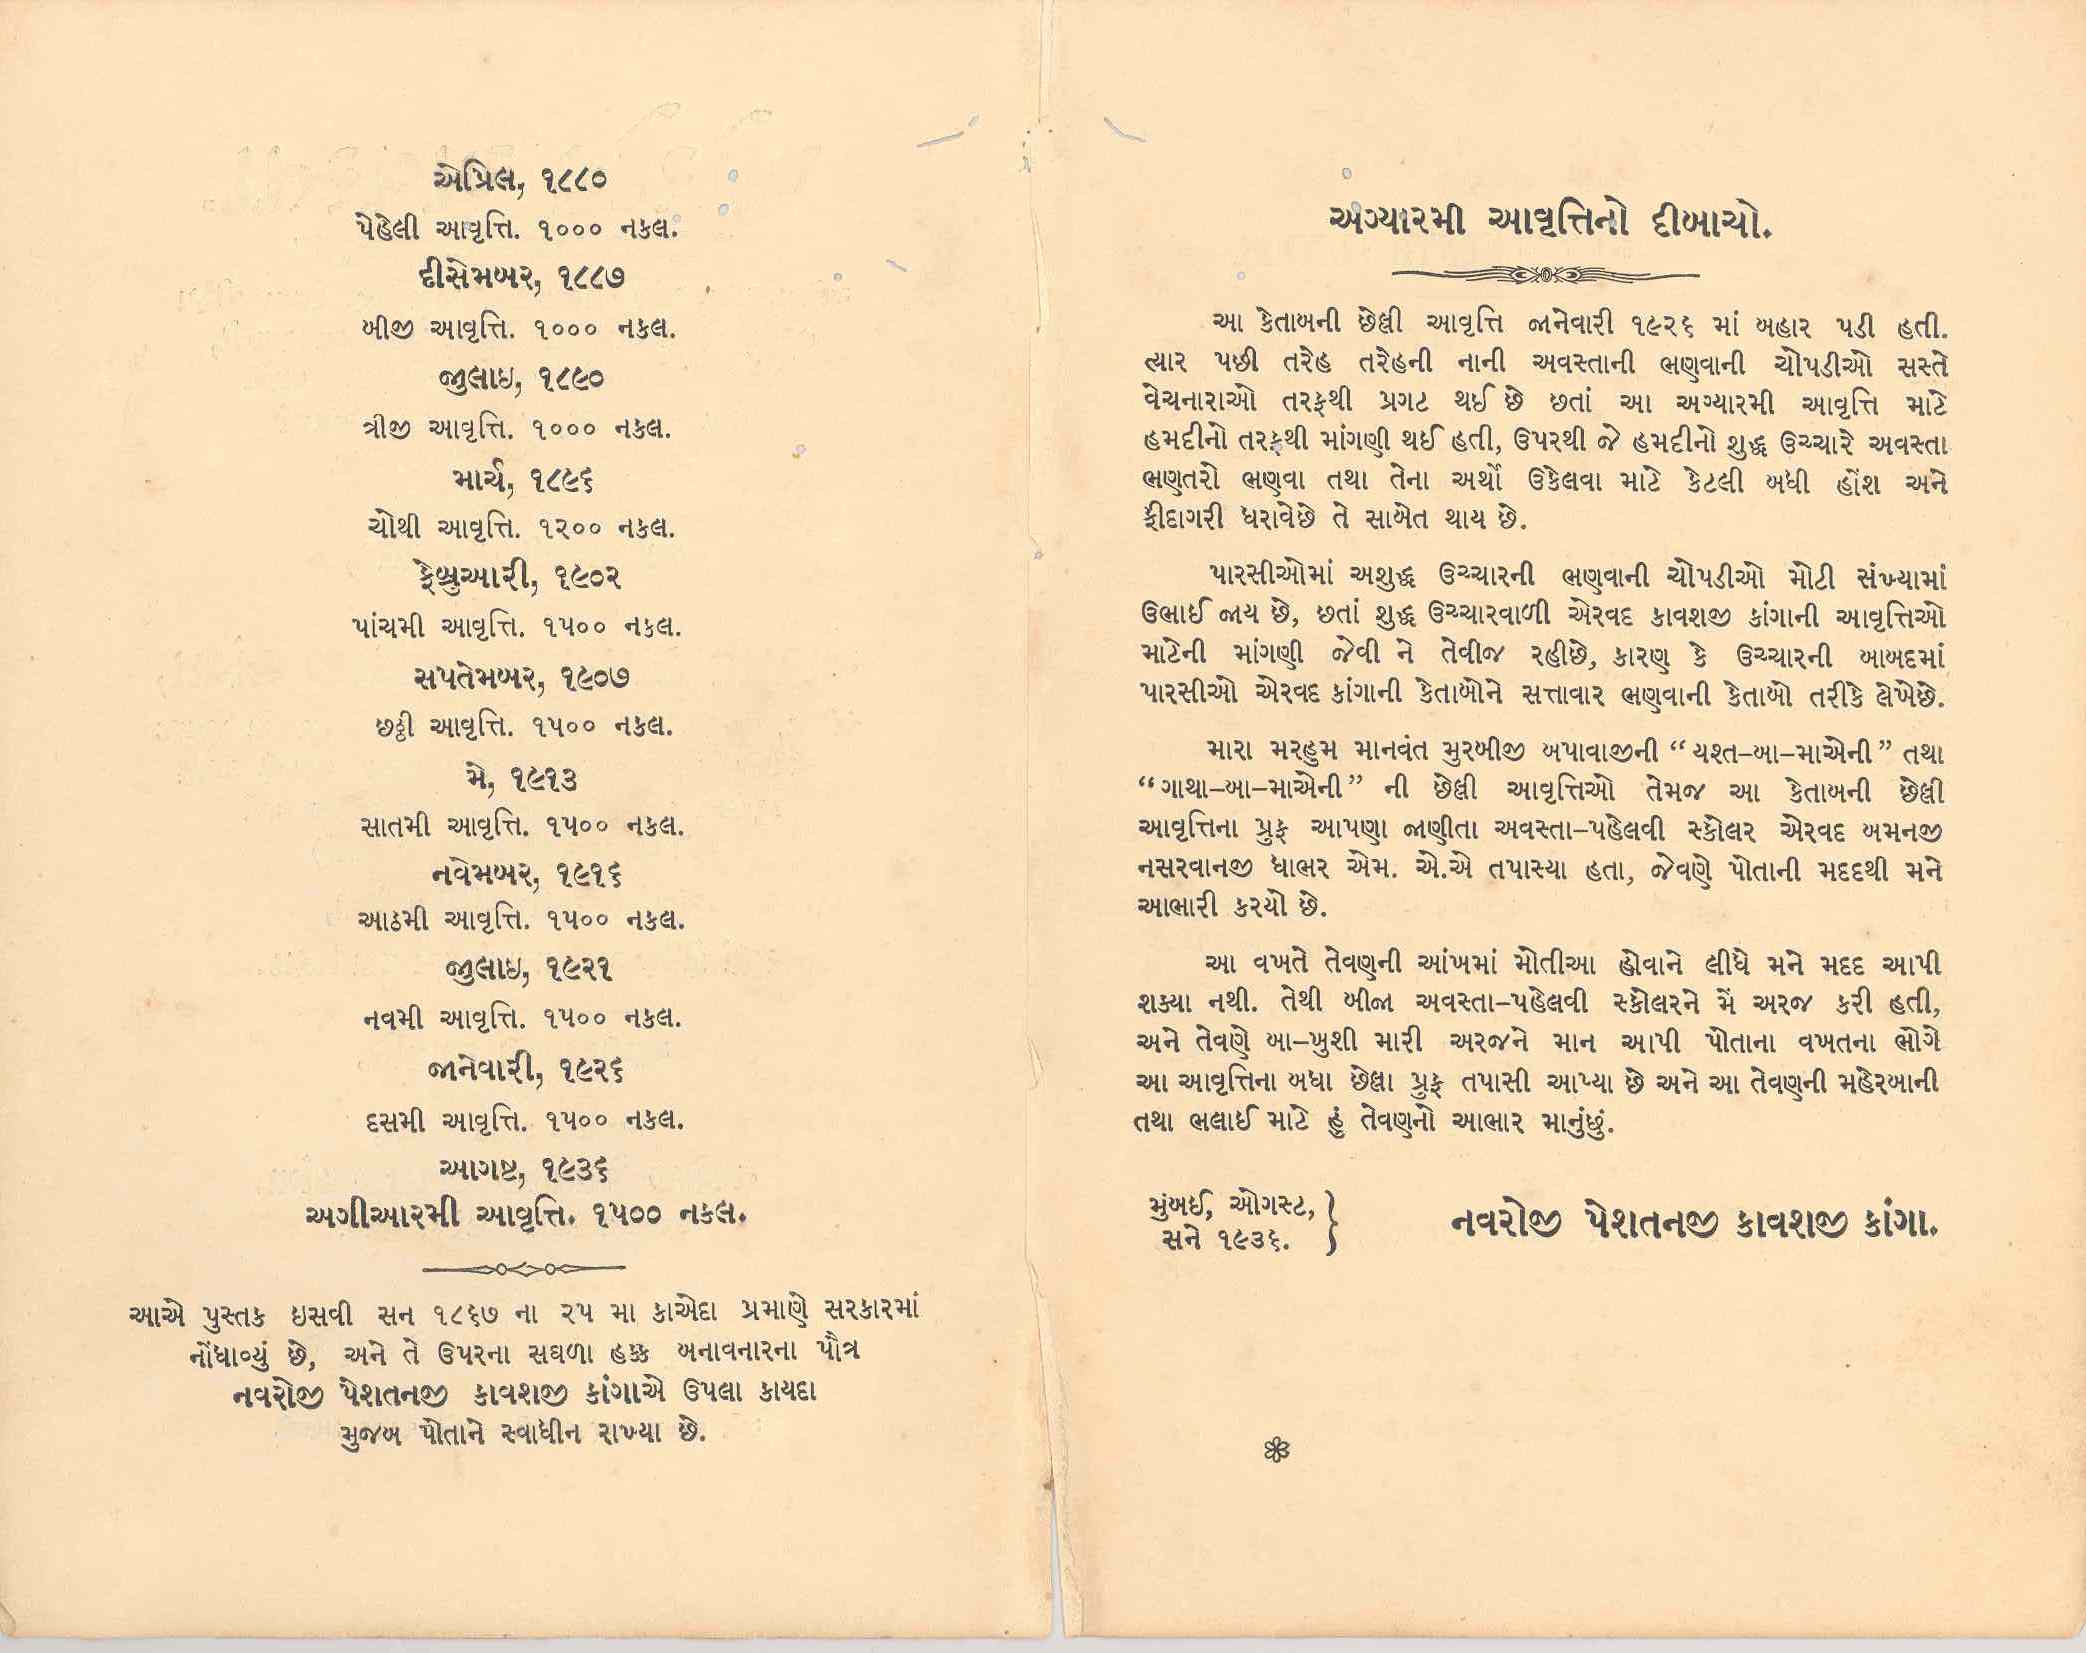 એપ્રિલ, ૧૮૮૦
પેહેલી આવૃત્તિ. ૧૦૦૦ નકલ.
દીસેમબર, ૧૮૮૭
બીજી આવૃત્તિ. ૧૦૦૦ નકલ.
જુલાઇ, ૧૮૯૦
ત્રીજી આવૃત્તિ. ૧૦૦૦ નકલ.
માર્ચ, ૧૮૯૬
ચોથી આવૃત્તિ. ૧૨૦૦ નકલ.
ફેબ્રુઆરી, ૧૯૦૨
પાંચમી આવૃત્તિ. ૧૫૦૦ નકલ.
સપતેમબર, ૧૯૦૭
છઠ્ઠી આવૃત્તિ. ૧૫૦૦ નકલ.
મે, ૧૯૧૩
સાતમી આવૃત્તિ. ૧૫૦૦ નકલ.
નવેમબર, ૧૯૧૬
આઠમી આવૃત્તિ. ૧૫૦૦ નકલ.
જુલાઇ, ૧૯૨૧
નવમી આવૃત્તિ. ૧૫૦૦ નકલ.
જાનેવારી, ૧૯૨૬
દસમી આવૃત્તિ. ૧૫૦૦ નકલ.
આગષ્ટ, ૧૯૩૬
અગીઆરમી આવૃત્તિ. ૧૫૦૦ નકલ.
આએ પુસ્તક ઇસવી સન ૧૮૬૭ ના ૨૫ મા કાએદા પ્રમાણે સરકારમાં
નોંધાવ્યું છે, અને તે ઉપરના સઘળા હક્ક બનાવનારના પૌત્ર
નવરોજી પેશતનજી કાવશજી કાંગાએ ઉપલા કાયદા
મુજબ પોતાને સ્વાધીન રાખ્યા છે.
અગ્યારમી આવૃત્તિનો દીબાચો.
આ કેતાબની છેલ્લી આવૃત્તિ જાનેવારી ૧૯૨૬ માં બહાર પડી હતી.
ત્યાર પછી તરેહ તરેહની નાની અવસ્તાની ભણવાની ચોપડીઓ સસ્તે
વેચનારાઓ તરફથી પ્રગટ થઈ છે છતાં આ અગ્યારમી આવૃત્તિ માટે
હમદીનો તરફથી માંગણી થઈ હતી, ઉપરથી જે હમદીનો શુદ્ધ ઉચ્ચારે અવસ્તા
ભણતરો ભણવા તથા તેના અર્થો ઉકેલવા માટે કેટલી બધી હોંશ અને
ફીદાગરી ધરાવેછે તે સાબેત થાય છે.
પારસીઓમાં અશુદ્ધ ઉચ્ચારની ભણવાની ચોપડીઓ મોટી સંખ્યામાં
ઉભાઈ જાય છે, છતાં શુદ્ધ ઉચ્ચારવાળી એરવદ કાવશજી કાંગાની આવૃત્તિઓ
માટેની માંગણી જેવી ને તેવીજ રહીછે, કારણ કે ઉચ્ચારની બાબદમાં
પારસીઓ એરવદ કાંગાની કેતાબોને સત્તાવાર ભણવાની કેતાબો તરીકે લેખેછે.
મારા મરહુમ માનવંત મુરબીજી બપાવાજીની “યશ્ત-બા-માએની” તથા
“ગાથા-બા-માએની” ની છેલ્લી આવૃત્તિઓ તેમજ આ કેતાબની છેલ્લી
આવૃત્તિના પ્રુફ આપણા જાણીતા અવસ્તા-પહેલવી સ્કોલર એરવદ બમનજી
નસરવાનજી ધાભર એમ. એ.એ તપાસ્યા હતા, જેવણે પોતાની મદદથી મને
આભારી કરયો છે.
આ વખતે તેવણની આંખમાં મોતીઆ હોવાને લીધે મને મદદ આપી
શક્યા નથી. તેથી બીજા અવસ્તા-પહેલવી સ્કોલરને મેં અરજ કરી હતી,
અને તેવણે બા-ખુશી મારી અરજને માન આપી પોતાના વખતના ભોગે
આ આવૃત્તિના બધા છેલ્લા પ્રુફ તપાસી આપ્યા છે અને આ તેવણની મહેરબાની
તથા ભલાઈ માટે હું તેવણનો આભાર માનુંછું.
મુંબઈ, ઓગસ્ટ,
સને ૧૯૩૬.
નવરોજી પેશતનજી કાવશજી કાંગા.